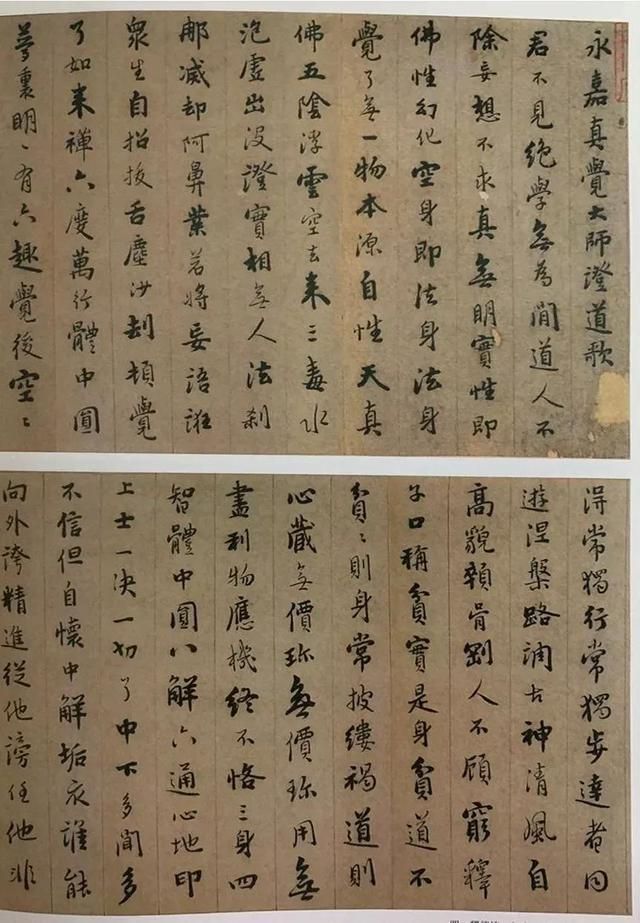 永嘉真覺大師證道歌
君不見絕學無為閒道人不
除妄想不求真無明實性即
佛性幻化空身即法身法身
覺了無一物本源自性天真
佛五陰浮雲空去來三毒水
泡虛出沒證實相無人法剎
那滅却阿鼻業若將妄語誑
衆生自招拔舌塵沙劫頓覺
了如来禪六度萬行體中圓
夢裏明々有六趣覺後空々
淂常獨行常獨步達者同
遊涅槃路調古神清風自
高貌顇骨剛人不顧窮釋
子口稱貧實是身貧道不
貧々則身常披縷褐道則
心藏無價珎無價珎用無
盡利物應機終不悋三身四
智體中圓八解六通心地印
上士一決一切了中下多聞多
不信但自懷中解垢衣誰能
向外誇精進從他謗任他非